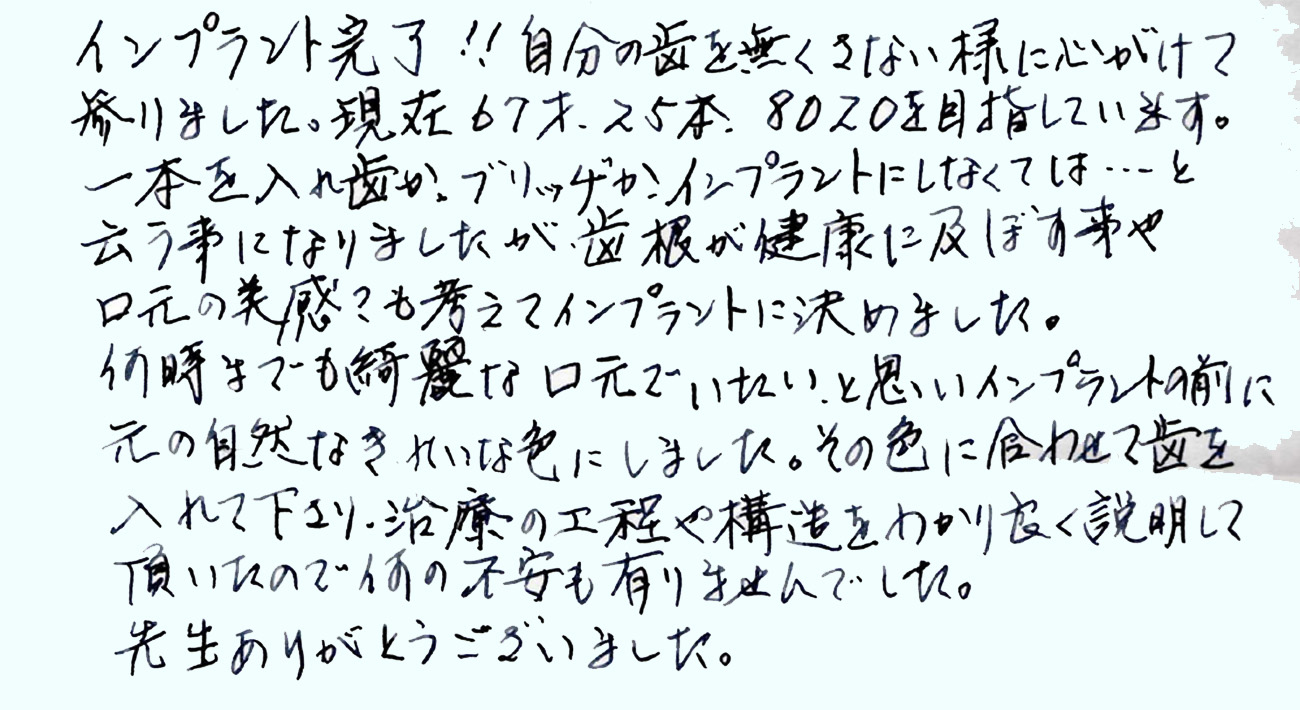 インプラント完了!!自分の歯を無くさない様に心がけて
参りました。現在67才、25本、8020を目指しています。
一本を入れ歯か、ブリッヂか、インプラントにしなくては…と
云う事になりましたが、歯根が健康に及ぼす事や
口元の美感でも考えてインプラントに決めました。
何時までも綺麗な口元でいたいと思いインプラントの前に
元の自然なきれいな色にしました。その色に合わせて歯を
入れて下さり、治療の工程や構造をわかり良く説明して
頂いたので何の不安も有りませんでした。
先生ありがとうございました。